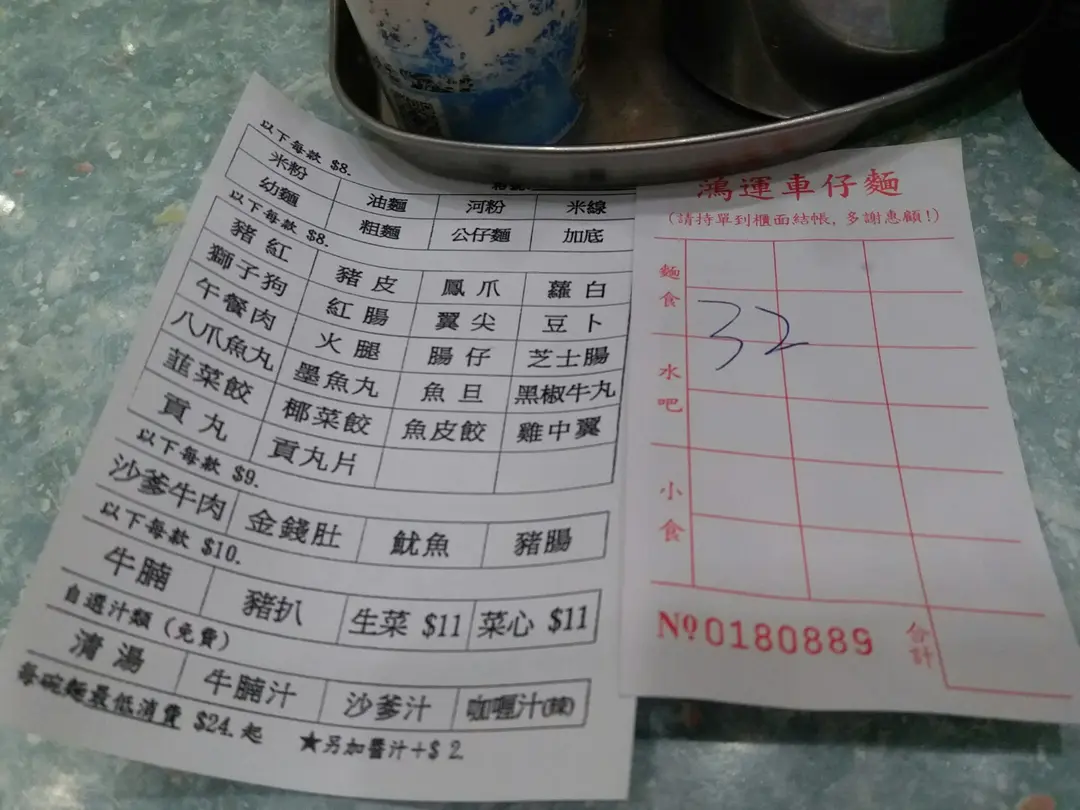 以下每款 $8.
米粉 油麵 河粉 米線
幼麵 粗麵 公仔麵 加底
以下每款 $8.
豬紅 豬皮 鳳爪 蘿白
獅子狗 紅腸 翼尖 豆卜
午餐肉 火腿 腸仔 芝士腸
八爪魚丸 墨魚丸 魚旦 黑椒牛丸
韮菜餃 椰菜餃 魚皮餃 雞中翼
貢丸 貢丸片
以下每款 $9.
沙爹牛肉 金錢肚 魷魚 豬腸
以下每款 $10.
牛腩 豬扒 生菜 $11 菜心 $11
自選汁類 (免費)
清湯 牛腩汁 沙爹汁 咖喱汁(辣)
每碗麵最低消費 $24.起 ★另加醬汁+$2
鴻運車仔麵
(請持單到櫃面結帳,多謝惠顧!)
麵食
32
水吧
小食
№0180889 合計